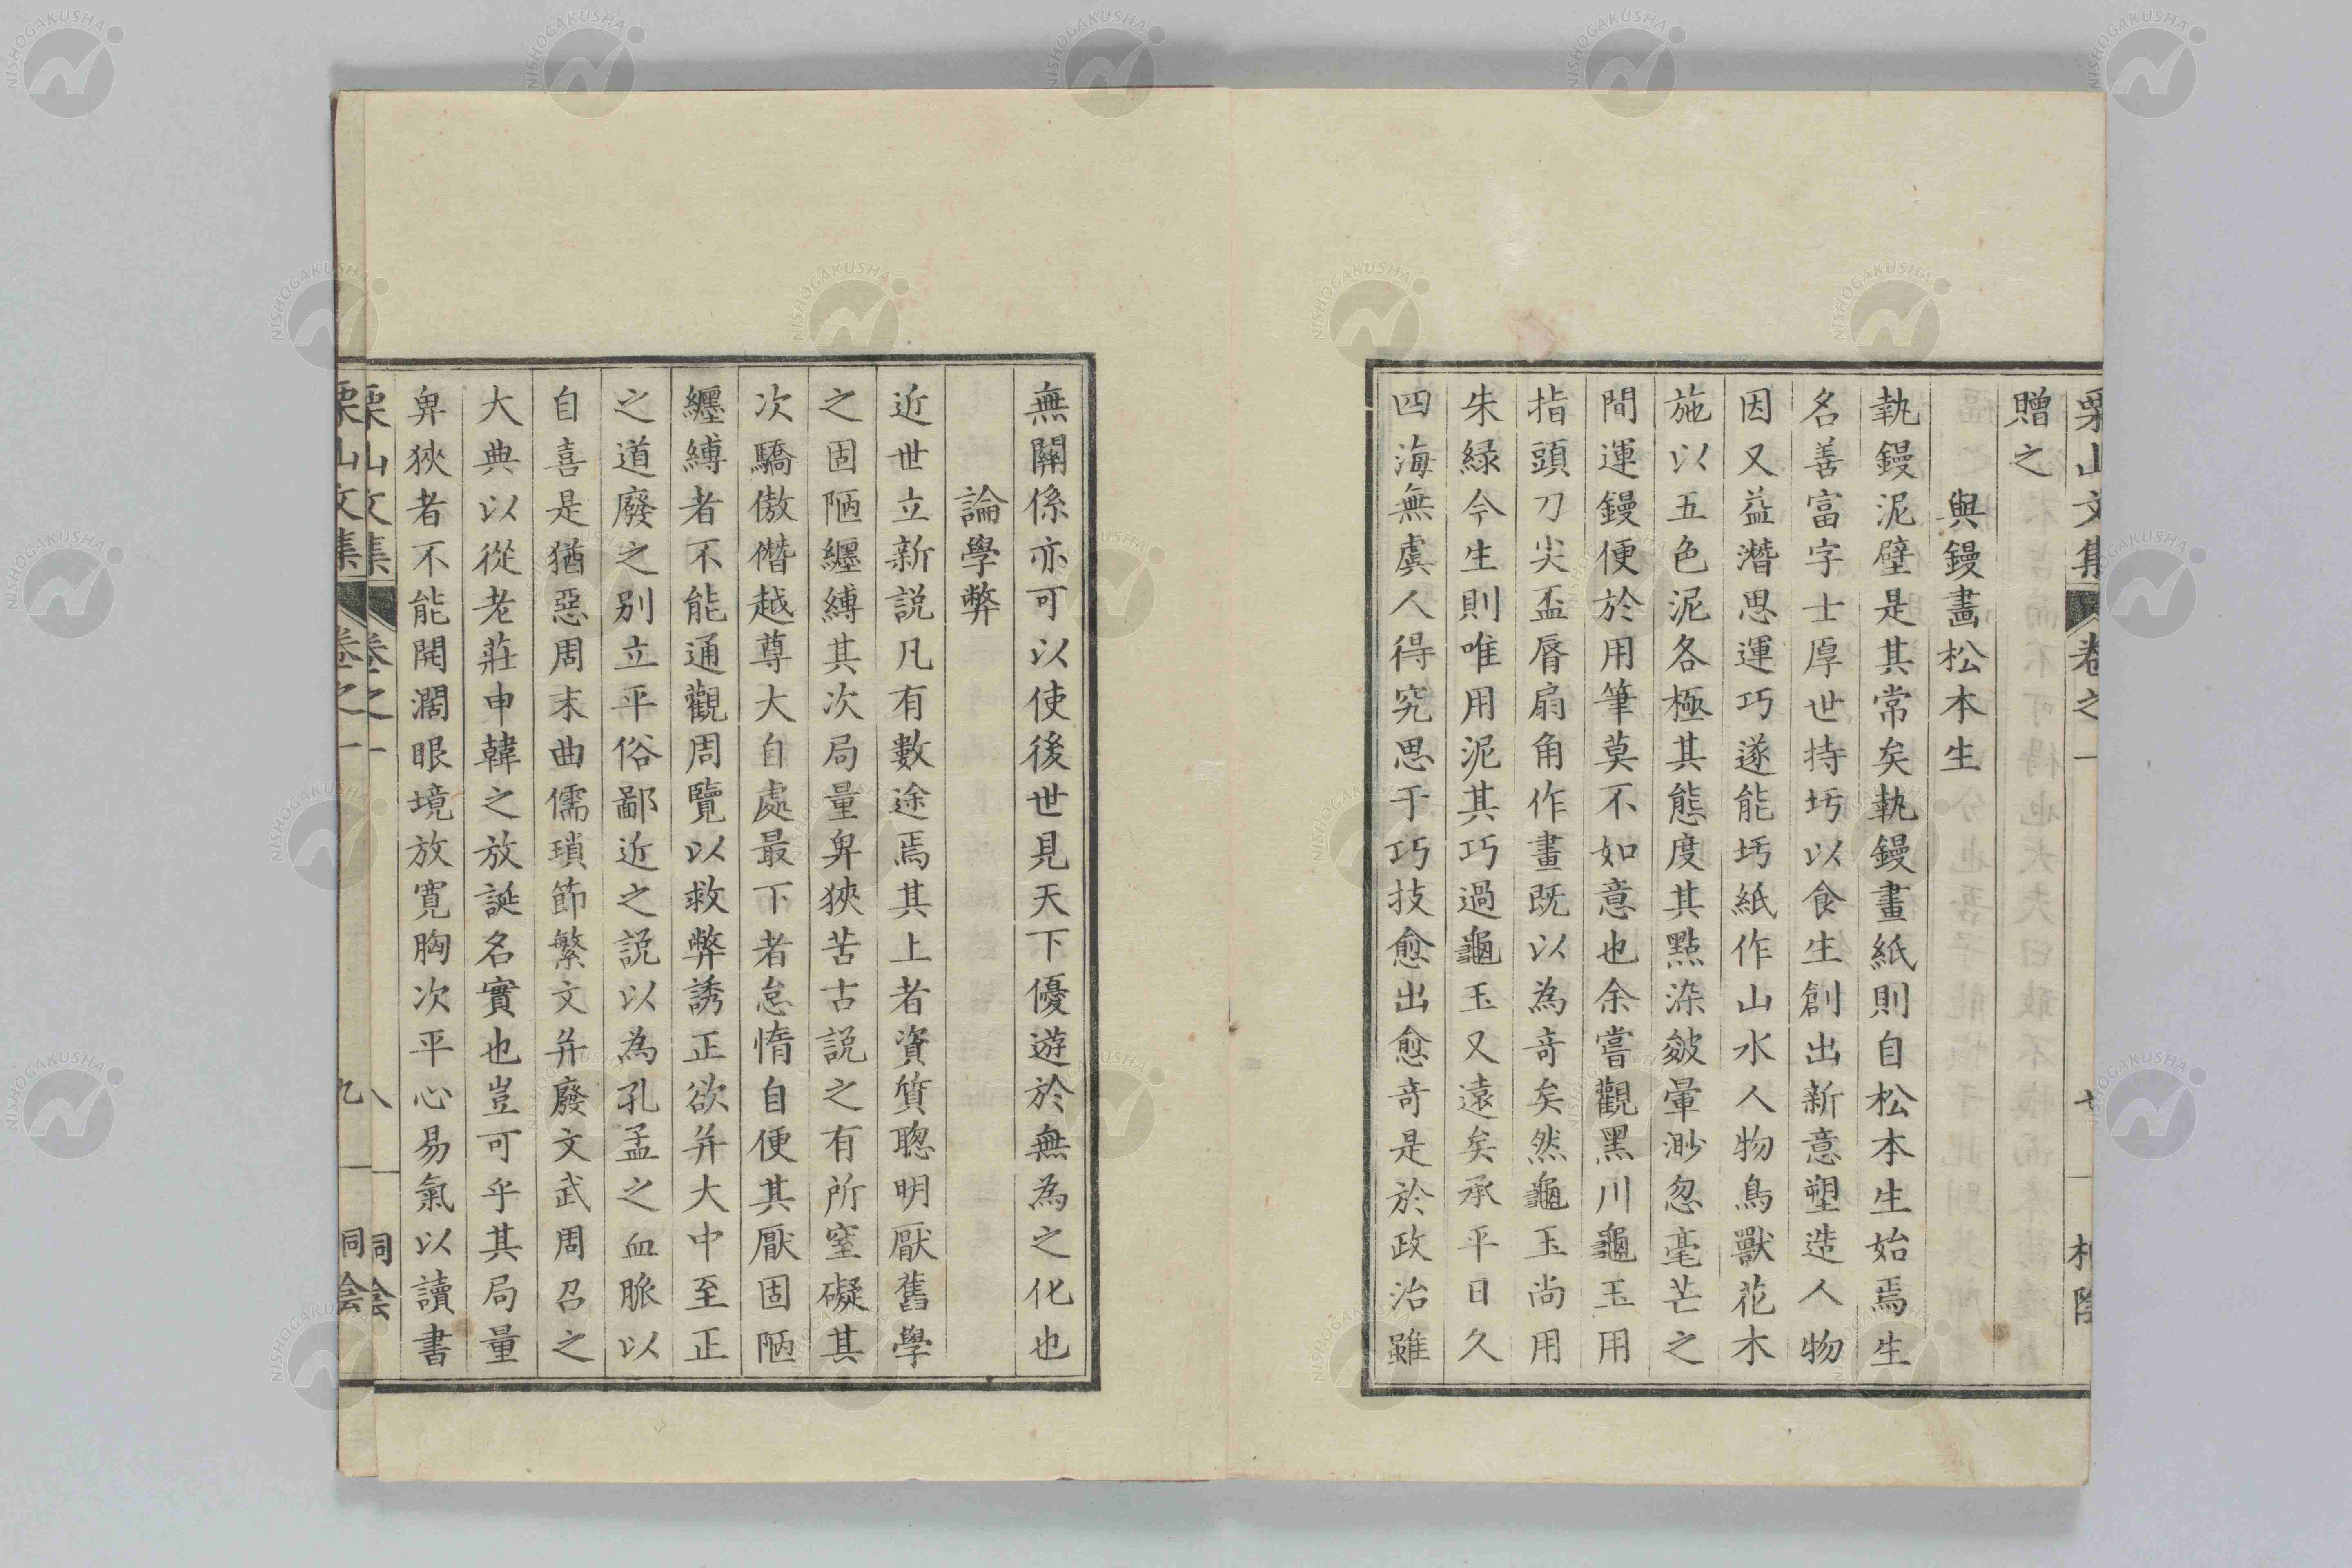 栗山文集 卷之一
贈之
與鏝畵松本生
執鏝泥壁是其常矣執鏝畫紙則自松本生始焉生
名善富字士厚世持圬以食生創出新意塑造人物
因又益潛思運巧遂能圬紙作山水人物鳥獸花木
施以五色泥各極其態度其點染皴暈渺忽毫芒之
間運鏝便於用筆莫不如意也余嘗觀黑川龜玉用
指頭刀尖盃脣扇角作畫既以為竒矣然龜玉尚用
朱緑今生則唯用泥其巧過龜玉又遠矣承平日久
四海無虞人得究思于巧技愈出愈竒是於政治雖
無關係亦可以使後世見天下優遊於無為之化也
論學弊
近世立新説凡有數途焉其上者資質聰明厭舊學
之固陋纒縛其次局量卑狹苦古説之有所窒礙其
次驕傲僭越尊大自處最下者怠惰自便其厭固陋
纒縛者不能通觀周覽以救弊誘正欲并大中至正
之道廢之别立平俗鄙近之説以為孔孟之血脈以
自喜是猶惡周末曲儒瑣節繁文并廢文武周召之
大典以從老莊申韓之放誕名實也豈可乎其局量
卑狹者不能開濶眼境放寛胸次平心易氣以讀書
栗山文集 卷之一 八
栗山文集 卷之一 九
NISHOGAKUSHA